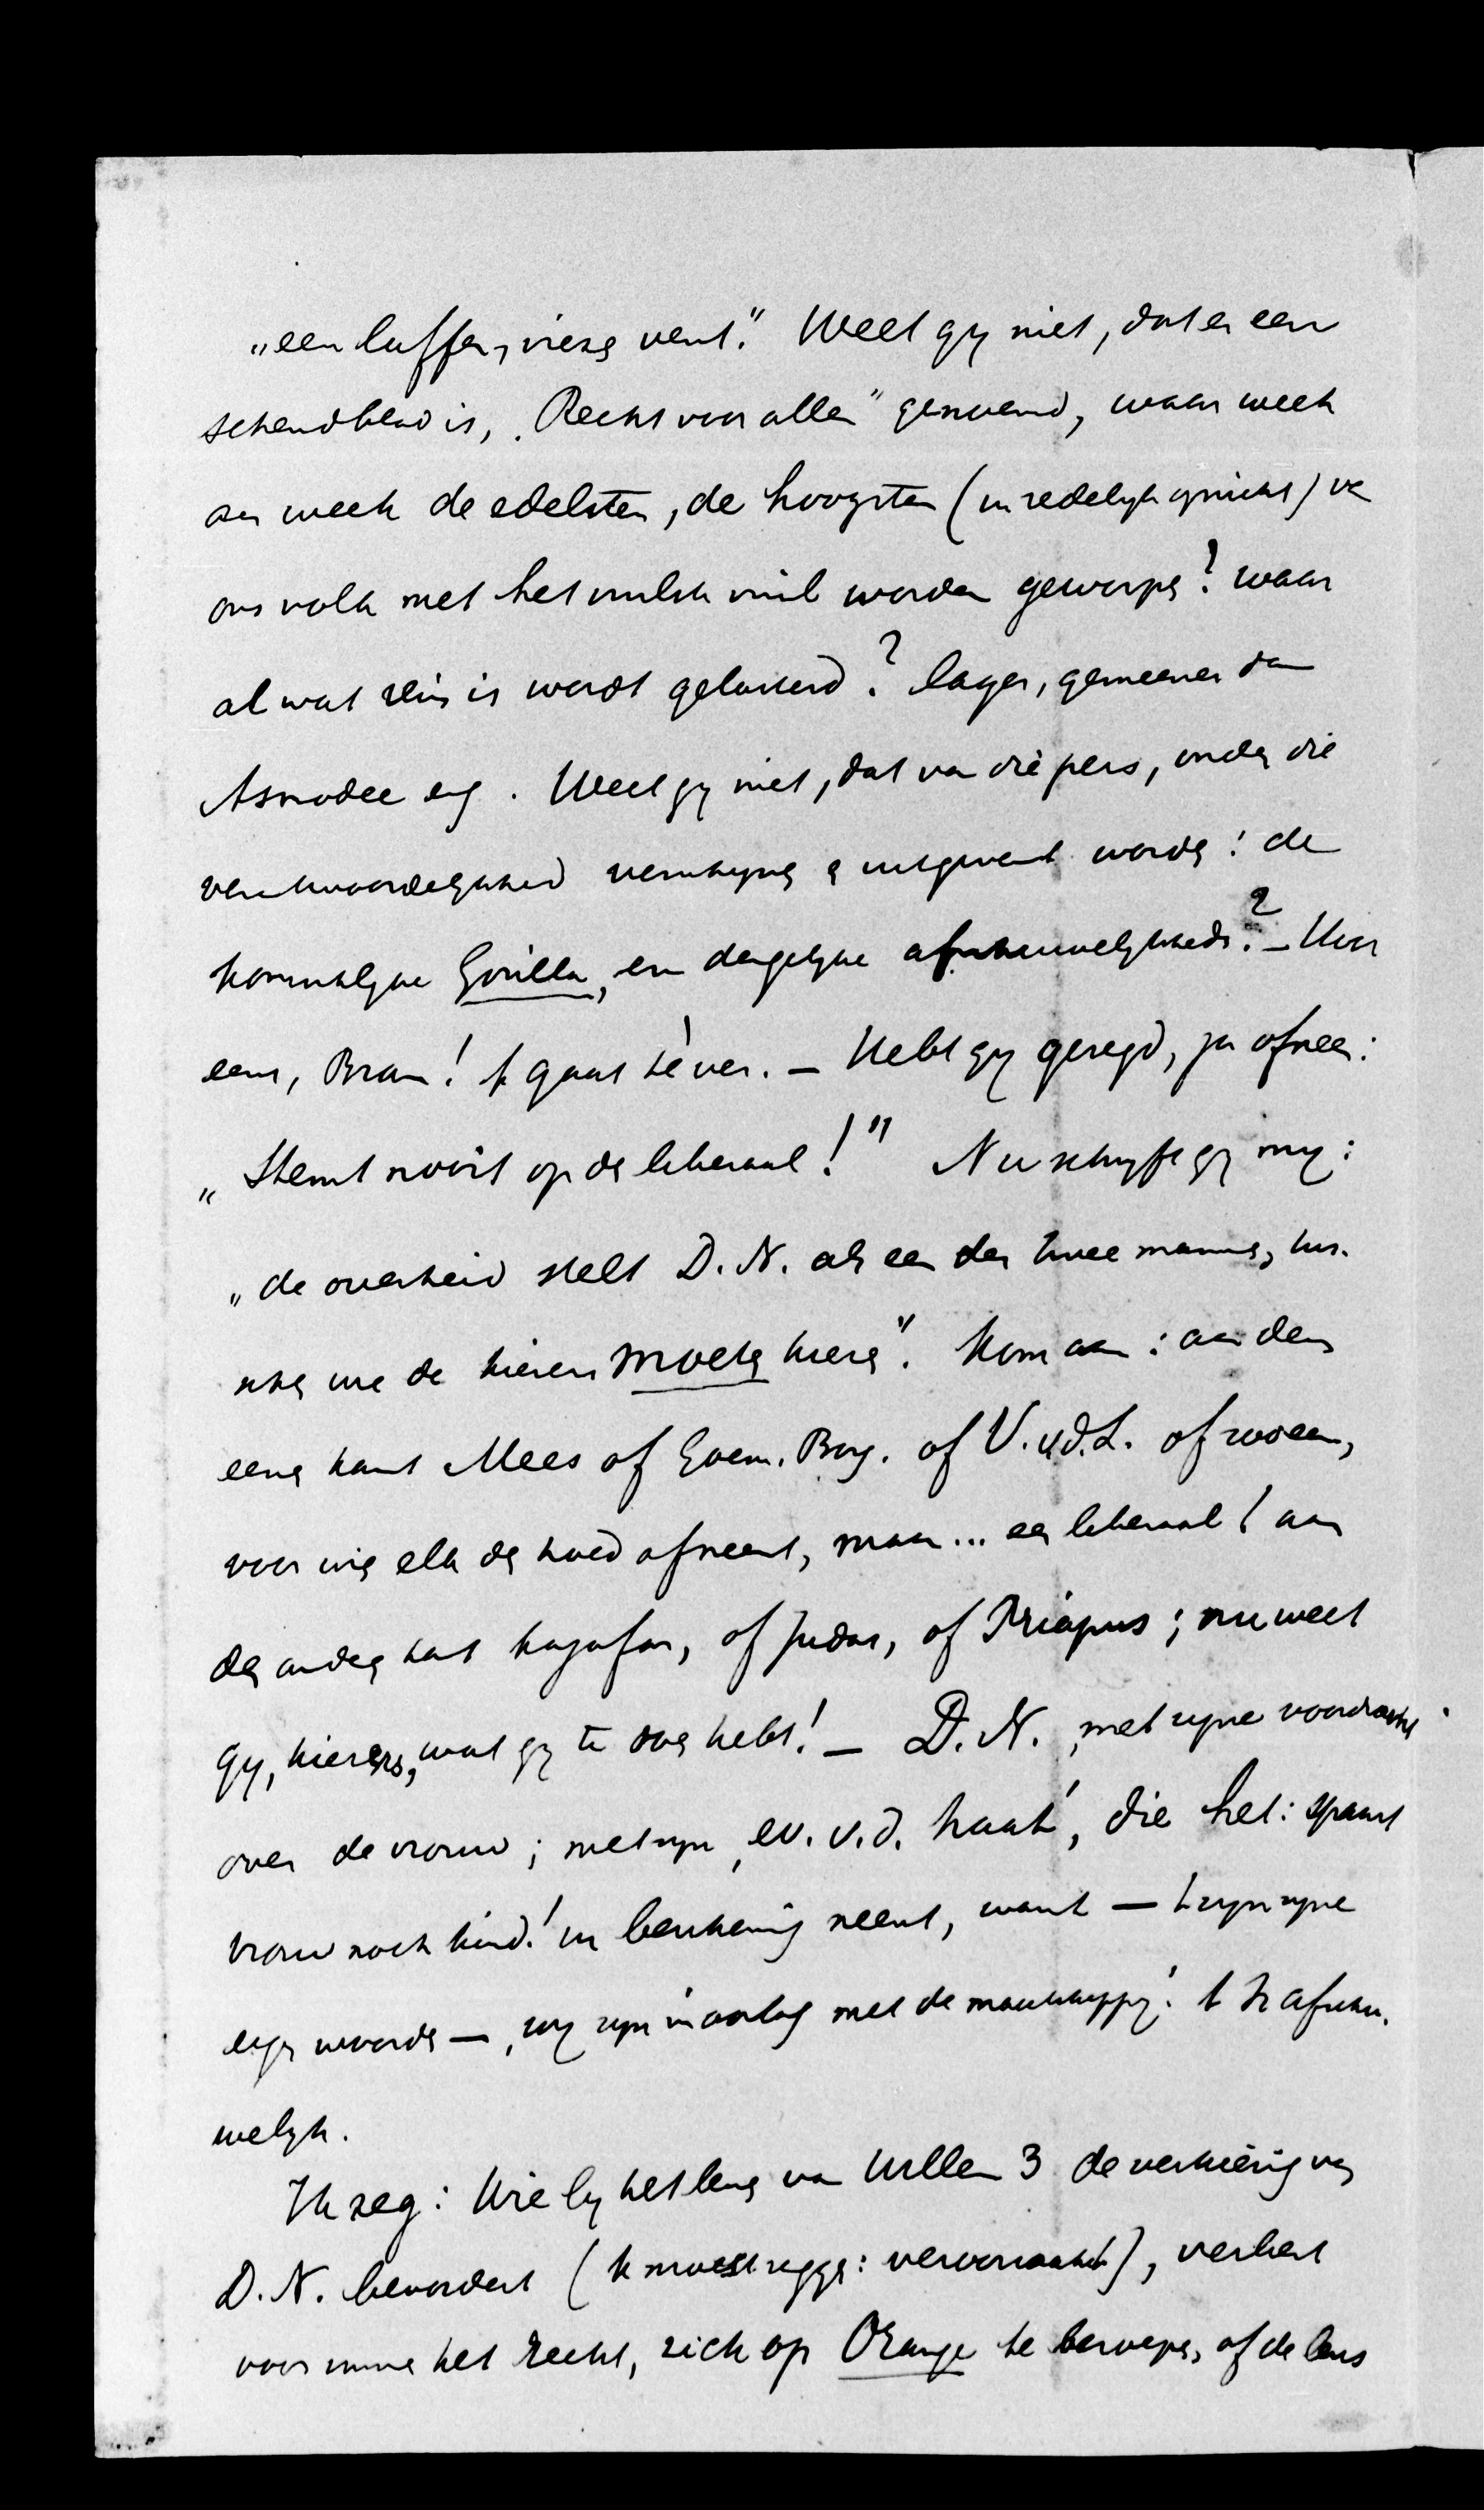 „een laffen, viezen vent.” Weet gy niet, dat er een
schendblad is, „Recht voor allen” genoemd, waar week
aan week de edelsten, de hoogsten (in zedelyk opzicht) van
ons volk met het vuilste vuil worden geworpen? waar
al wat rein is wordt gelasterd? lager, gemeener dan
Asmodee enz. Weet gy niet, dat van die pers, onder die
verantwoordelykheid verschynen en uitgevent worden: de
koninklyke Gorilla, en dergelyke afschuwelykheden? – Hoor
eens, Bram! 't gaat té ver. – Hebt gy gezegd, ja of neen:
„Stemt nooit op de liberaal!” Nu schryft gy my:
„de overheid stelt D.N. als een der twee mannen, tus-
schen wie de kiezers moeten kiezen”. Kom aan: aan den
eenen kant Mees of Goem. Borg. of V. v.d. L. of zoo een,
voor wien elk den hoed afneemt, maar... een liberaal! aan
den anderen kant Kajafas, of Judas, of Priapus; nu weet
gy, kiezers, wat gy te doen hebt! – D.N., met zyne voordrachten
over de vrouw; met zyn „ev. v.d. haat”, die het: spaart
vrouw noch kind! in bescherming neemt, want – 't zyn zyne
eigen woorden – „wy zyn in oorlog met de maatschappy! 't Is afschu-
welyk.
Ik zeg: Wie by het leven van Willem 3 de verkiezing van
D.N. bevordert (ik moest zeggen: veroorzaakt), verliest
voor immer het recht, zich op Oranje te beroepen, of de leus